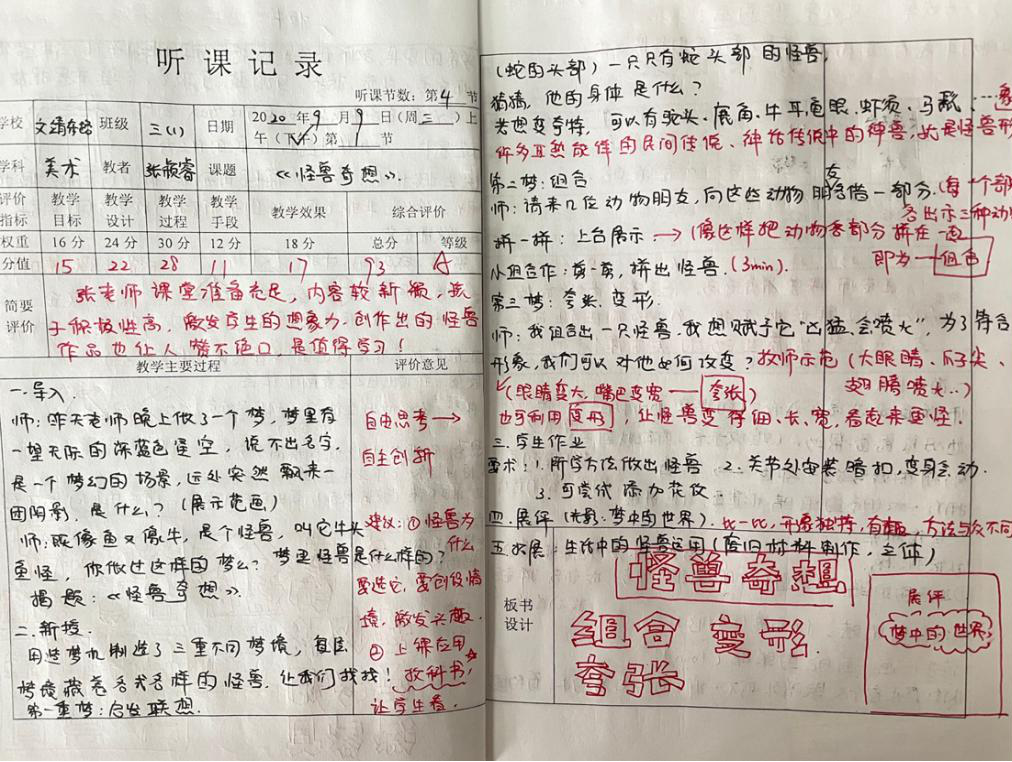 听课记录
听课节数：第4节
学校 文靖东路 班级 三(1) 日期 2020年9月9日(周三)上
午(下午)第 节
学科 美术 教者 张颖睿 课题 《怪兽奇想》.
评价指标 教学目标 教学设计 教学过程 教学手段 教学效果 综合评价
权重 16分 24分 30分 12分 18分 总分 等级
分值 15 22 28 11 17 93 A
简要评价
张老师课堂准备充足，内容较新颖，孩
子积极性高，激发学生的想象力.创作出的怪兽
作品也让人赞不绝口，是值得学习！
教学主要过程 评价意见
一.导入.
师：昨天老师晚上做了一个梦，梦里有
一望无际的深蓝色星空，说不出名字.
是一个梦幻的场景，远处突然飘来一
团阴影.是什么？(展示范画)
师：既像鱼又像牛，是个怪兽，叫它牛头
鱼怪，你做过这样的梦么？梦里怪兽是什么样的？
揭题：《怪兽奇想》.
二.新授.
用造梦机制造了三重不同梦境，每层
梦境藏着各式各样的怪兽.让我们找找！
第一重梦：启发联想.
自由思考→
自主创新
建议：①怪兽为
什么
要选它，要创设情
境，激发兴趣.
②上课应用
教科书，
让学生看.
(蛇的头部)一只只有蛇头部的怪兽，
猜猜，他的身体是什么？
关想变奇特，可以有驼头、鹿角、牛耳、龟眼、虾须、马鬃、……
许多耳熟能详的民间传说、神话传说中的神兽，此是怪兽形
第二梦：组合
师：请来几位动物朋友，向这些动物朋友借一部分.(每一个部
各出示三种动
拼一拼：上台展示.→(像这样把动物各部分拼在一起
即为→组合
小组合作：剪一剪，拼出怪兽.(3min).
第三梦：夸张.变形.
师：我组合出一只怪兽.我想赋予它"凶猛.会喷火"，为了符合
形象，我们可以对他如何改变？教师示范(大眼睛、爪子尖、
翅膀喷火…)
(眼睛变大，嘴巴变宽——夸张)
也可利用变形，让怪兽变得细、长、宽，看起来更怪.
三.学生作业
要求：1.所学方法做出怪兽 2.关节处安装暗扣，变身会动.
3.可尝试添加花纹.
四.展评(光影·梦中的世界).比一比，形象独特，有趣，方法与众不同
五.拓展：生活中的怪兽运用(废旧材料制作，立体)
板书设计
怪兽奇想
组合 变形.
夸张
展评
梦中的世界